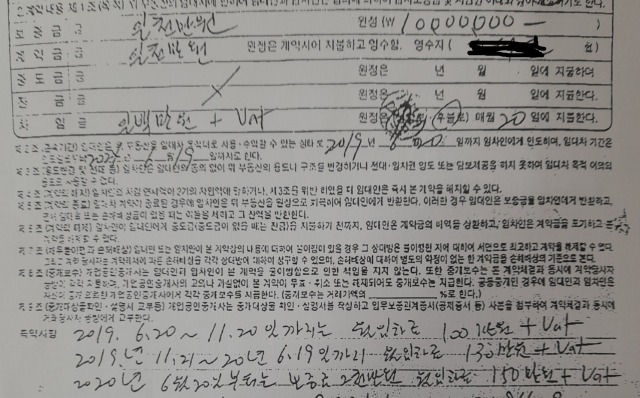 보증금 일천만원 원정 (₩ 10000000 - )
계약금 일천만원 원정은 계약시에 지불하고 영수함. 영수자 ( 인)
중도금 원정은 년 월 일에 지불하며
잔금 원정은 년 월 일에 지불한다.
차임 일백만원 + Vat 원정은 (후불로) 매월 20 일에 지불한다.
임대인은 위 부동산을 임대차 목적대로 사용·수익할 수 있는 상태로 2019년 6월 20일까지 임차인에게 인도하며, 임대차 기간은
6월 19일까지로 한다.
임차인은 임대인의 동의 없이 위 부동산의 용도나 구조를 변경하거나 전대·임차권 양도 또는 담보제공을 하지 못하며 임대차 목적 이외의
용도로 사용할 수 없다.
제3조를 위반 하였을 때 임대인은 즉시 본 계약을 해지할 수 있다.
임대차 계약이 종료된 경우에 임차인은 위 부동산을 원상으로 회복하여 임대인에게 반환한다. 이러한 경우 임대인은 보증금을 임차인에게 반환하고,
연체 임대료 또는 손해배상금이 있을 때는 이들을 제하고 그 잔액을 반환한다.
임차인이 임대인에게 중도금(중도금이 없을 때는 잔금)을 지불하기 전까지, 임대인은 계약금의 배액을 상환하고, 임차인은 계약금을 포기하고
계약을 해제할 수 있다.
임대인 또는 임차인이 본 계약상의 내용에 대하여 불이행이 있을 경우 그 상대방은 불이행한 자에 대하여 서면으로 최고하고 계약을 해제할 수 있다.
그리고 계약당사자는 계약해제에 따른 손해배상을 각각 상대방에 대하여 청구할 수 있으며, 손해배상에 대하여 별도의 약정이 없는 한 계약금을 손해배상의 기준으로 본다.
개업공인중개사는 임대인과 임차인이 본 계약을 불이행함으로 인한 책임을 지지 않는다. 또한 중개보수는 본 계약체결과 동시에 계약당사자
쌍방이 각각 지불하며, 개업공인중개사의 고의나 과실없이 본 계약이 무효·취소 또는 해제되어도 중개보수는 지급한다. 공동중개인 경우에 임대인과 임차인은
자신이 중개 의뢰한 개업공인중개사에게 각각 중개보수를 지불한다. (중개보수는 거래가액의 %로 한다.)
개업공인중개사는 중개대상물 확인·설명서를 작성하고 업무보증관계증서(공제증서 등) 사본을 첨부하여 계약체결과 동시에
거래당사자 쌍방에게 교부한다.
특약사항 2019. 6.20 ~ 11.20일까지는 월임차료 100만원 + Vat
2019년 11.21~20년 6.19일까지 월임차료 130만원 + Vat
2020년 6월20일부터는 보증금 2천만원 월임차료 150만원 + Vat